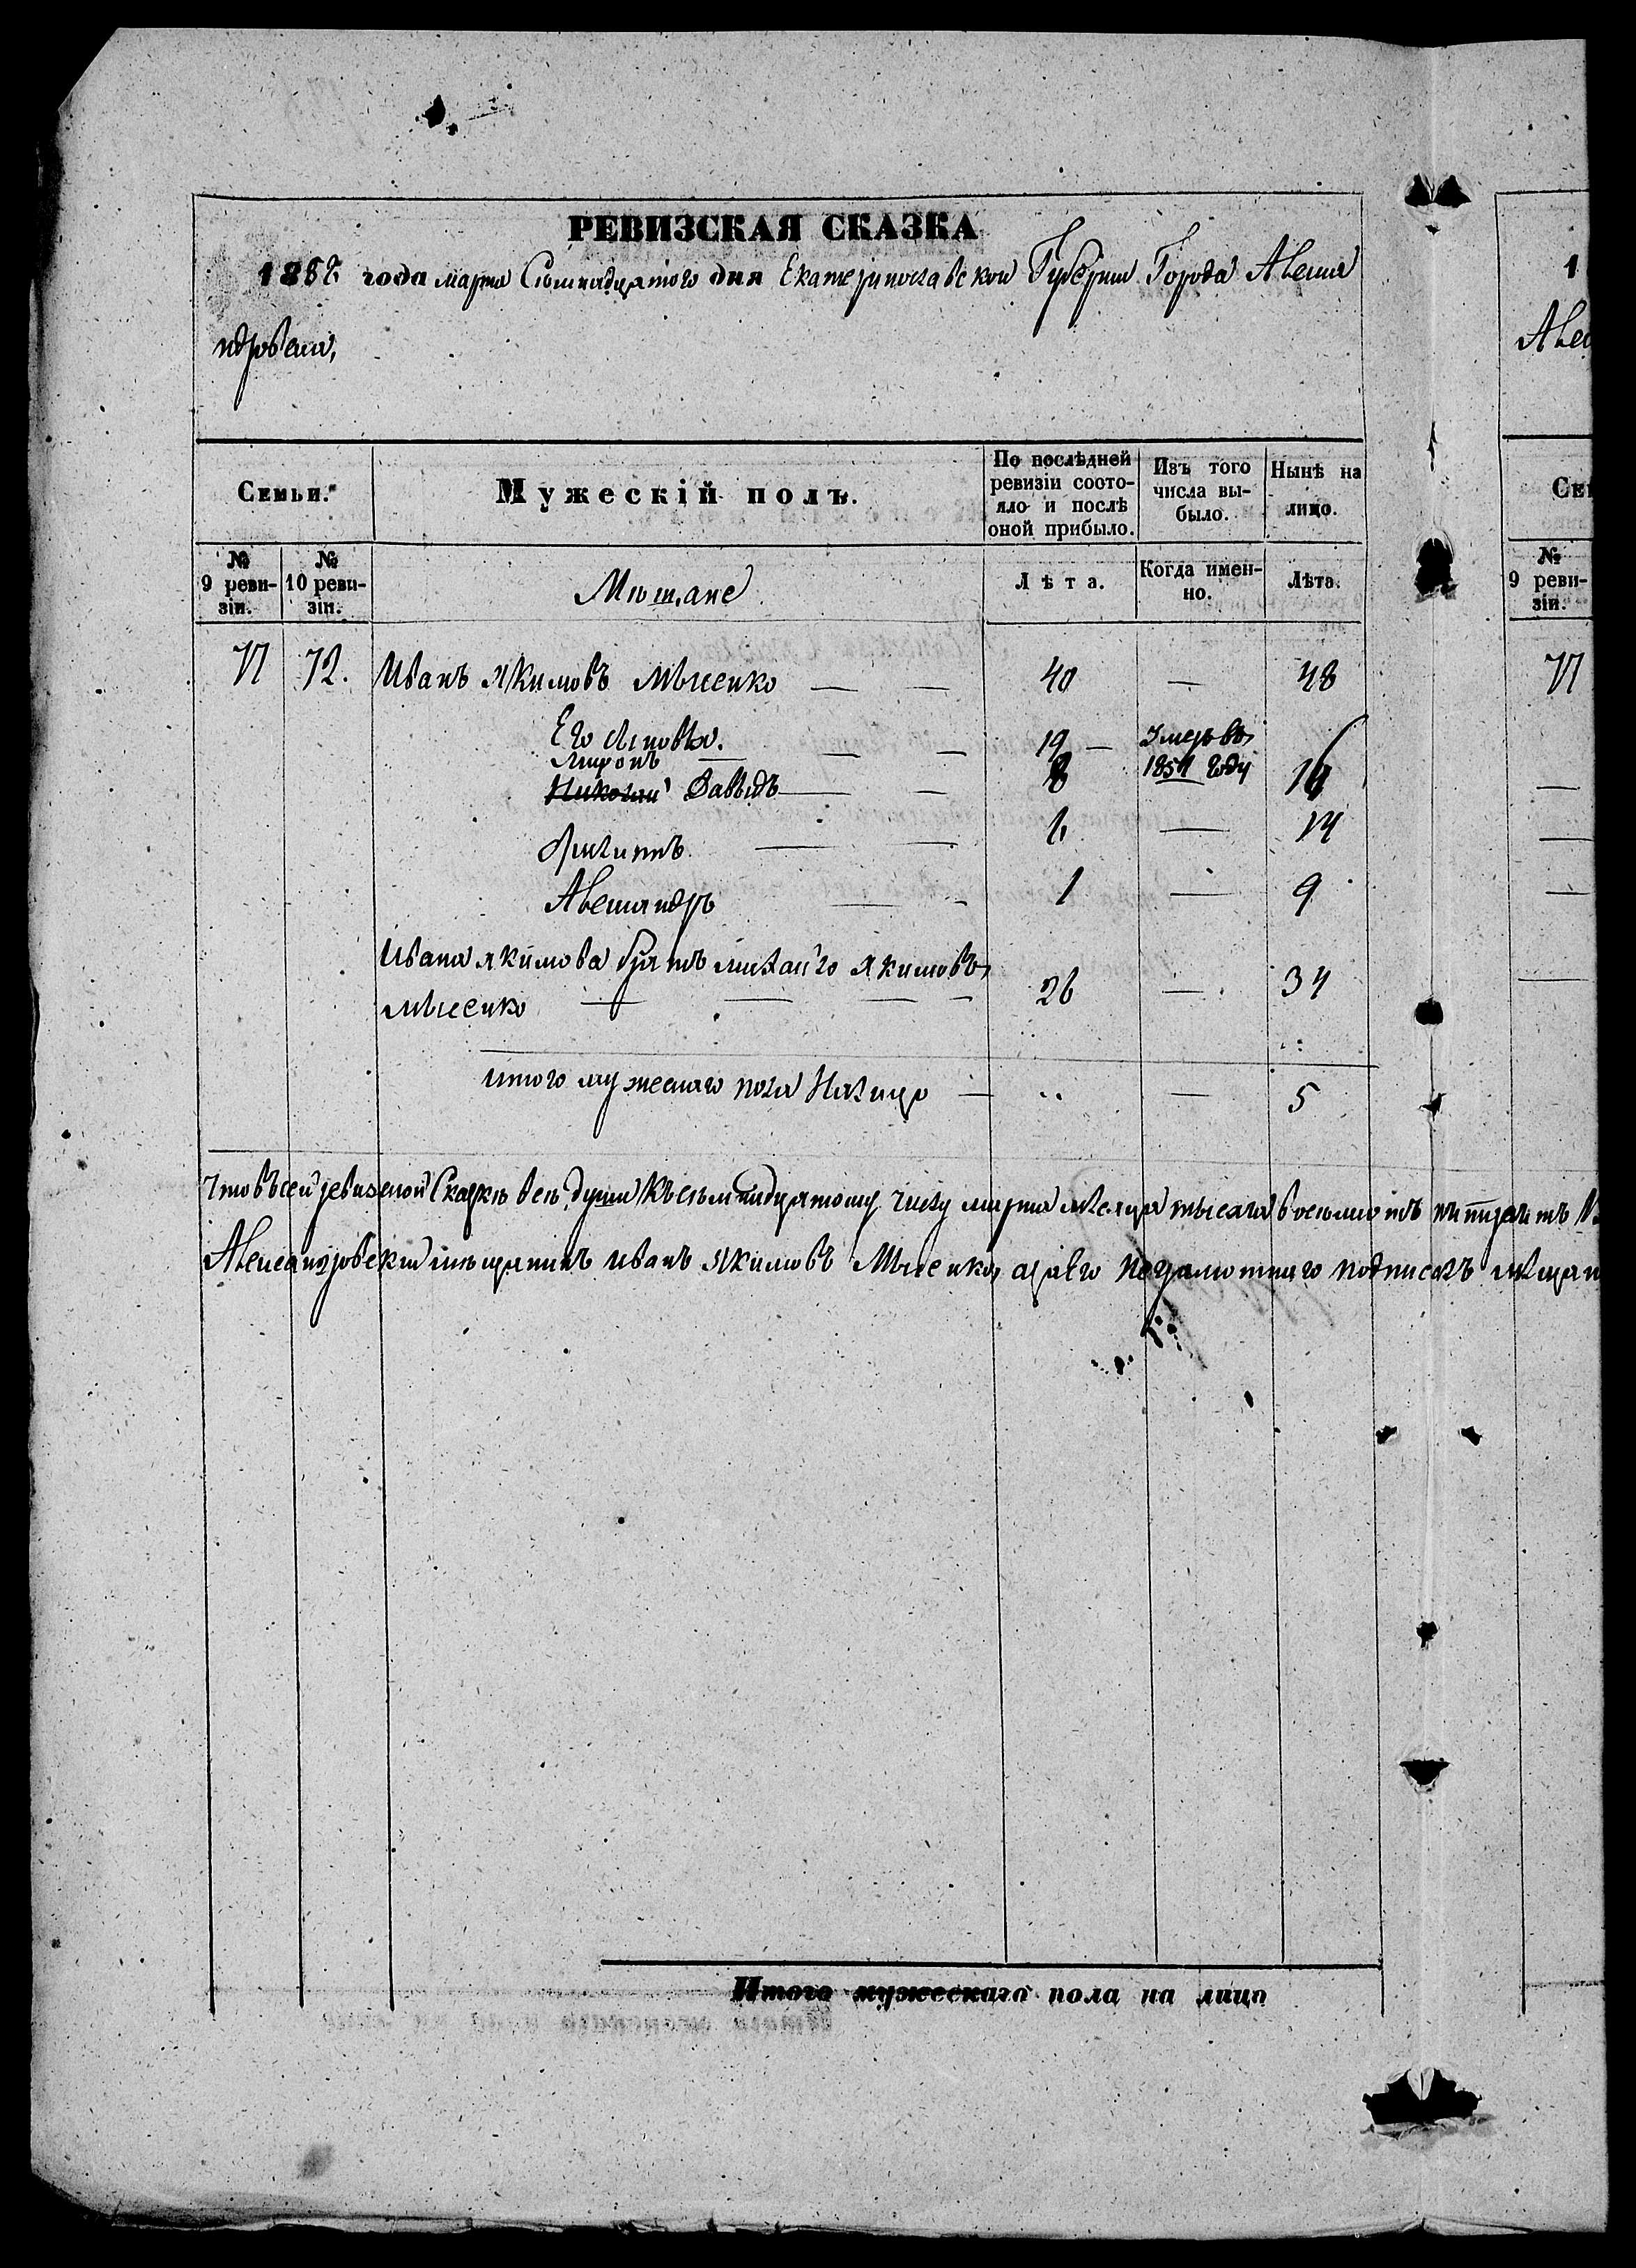 РЕВИЗСКАЯ СКАЗКА
185 года марта Семнадцатого дня Екатеринославской Губернiи Города Алексан
ндровска,
Семьи.
Мужескій полъ.
По послѣдней ревизіи состояло и послѣ оной прибыло.
Изъ того числа выбыло.
Нынѣ на лицо.
№ 9 ревизіи.
№ 10 ревизіи.
Мѣщане
Лѣта.
Когда именно.
Лѣта.
71 72. Иванъ Якимовъ Мысенко — — 40 — 48
Его Сыновья.
Миронъ — — — 19 — Умеръ въ
Николай Давыдъ — — 8 1854 году 16
Филипъ — — 6 — 14
Александръ — — 1 — 9
Ивана Якимова братъ Михайло Якимовъ
Мысенко — — — — 26 — 34
итого мужескаго пола На лицо — — 5
Что въ сей ревизской Сказкѣ всѣ души къ семнадцатому числу марта месяца тысяча восемьсотъ
Александровскій мѣщанинъ Иванъ Якимовъ Мысенко, а за его неграмотнаго подписалъ
Итого мужескаго пола на лицо
1
Але
Се
№ 9 ревизіи.
71